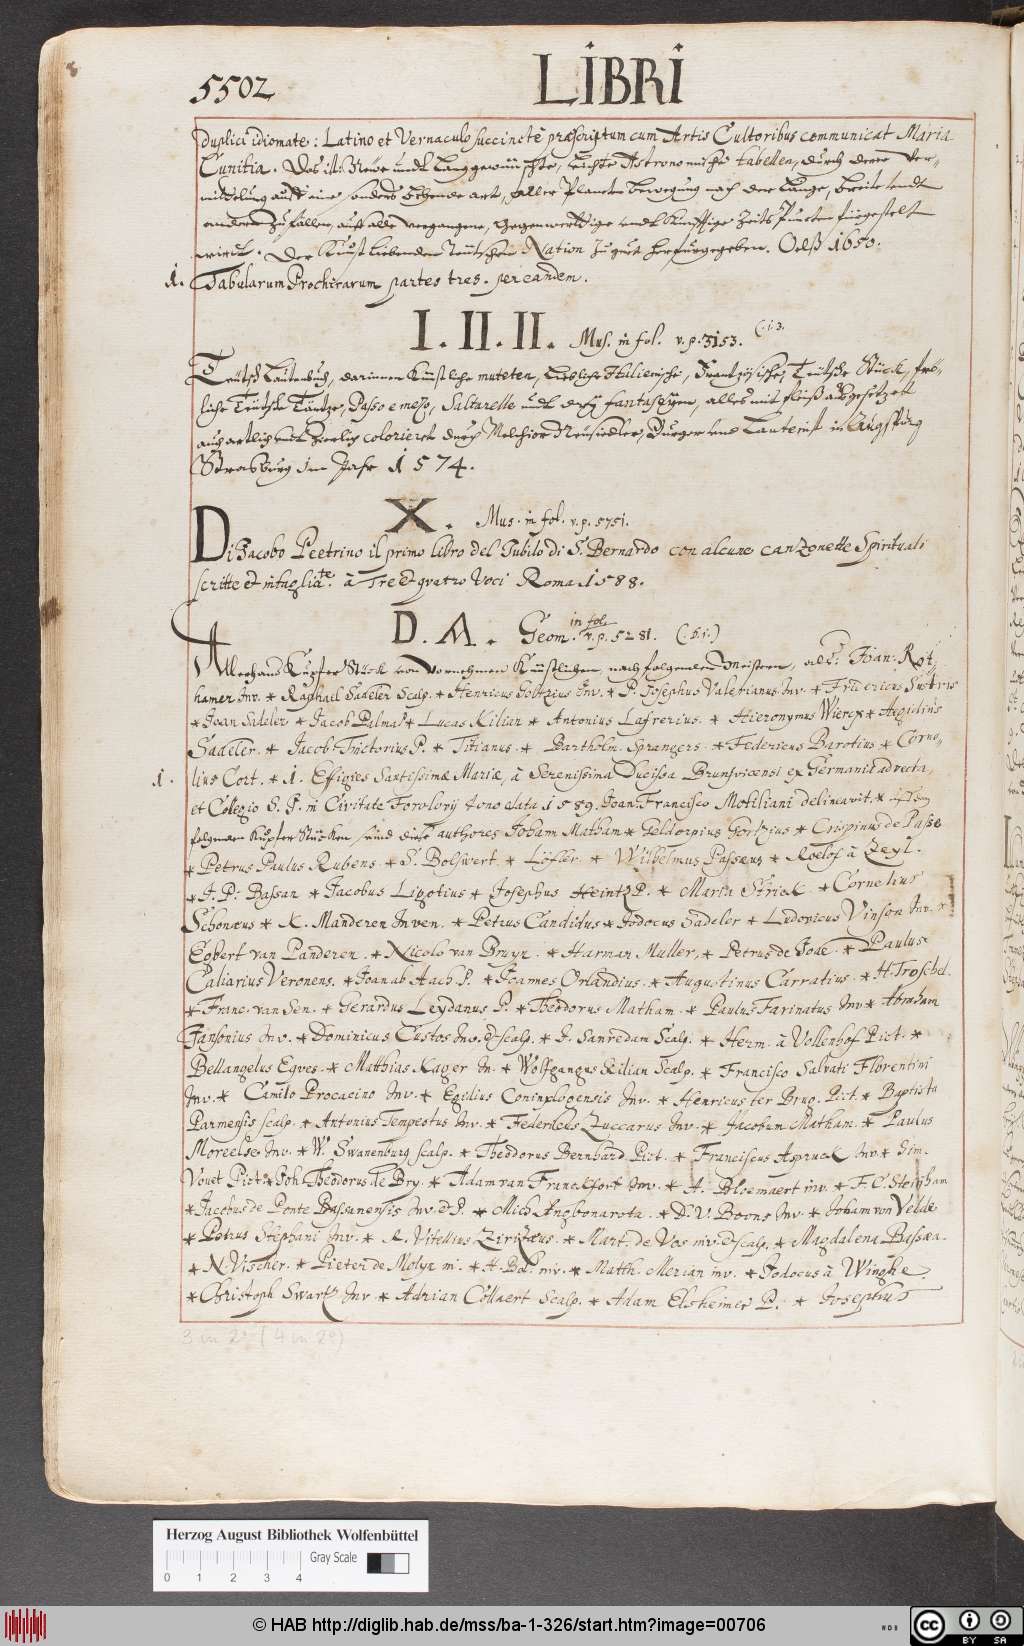 5502 LIBRI
duplici idiomate: Latino et Vernaculo succinctè præscriptum cum Artis Cultoribus communicat Maria
Cunitia. Das ist: Newe undt Langgewünschte, leichte Astronomische tabellen, durch derer Ver-
mittelung auff eine sonders behende art, aller Planeten bewegung nach der Länge, breite undt
andern Zufällen, auff alle vergangene, Gegenwertige undt künfftige Zeits Puncten fürgestelt
wirdt. Der Kunst liebenden Teutschen Nation zu gutt herfürgegeben. Oelß 1650.
1. Tabularum Prochirarum partes tres. per eandem.
I. II. II. Mus. in fol. v. p. 3153. (. i. 3.
Teutsch Lautenbuch, darinnen Künstliche muteten, liebliche Italienische, Frantzösische, Teutsche Stück, frö-
liche Teutsche Täntze, Passo e mezo, Saltarelle undt drey fantaseyen, alles mit fleiß außgesetzet
auch artlich undt zierlich colorieret durch Melchior Neusiedler, Burger und Lautenist in Augspurg
Strasburg im Jahr 1574.
X. Mus. in fol. v. p. 5751.
Di Jacobo Peetrino il primo libro del Jubilo di S. Bernardo con alcune canzonette Spirituali
scritte et intagliate. à Tre et qvatro Voci Roma 1588.
D. A. Geom. in fol. v. p. 5281. (. b. i.)
Allerhand Kupfer Stück von Vornehmen Künstlichen nach folgenden Meistern, als: Joan. Rot-
hamer Inv. * Raphael Sadeler Scalp. * Henricus Goltzius Inv. * P. Josephus Valerianus Inv. * Fridericus Sustris
* Joan Sadeler * Jacob Palma * Lucas Kilian * Antonius Lafrerius. * Hieronymus Wierex * Aegidius
Sadeler. * Jacob Tinctorius P. * Titianus. * Bartholm. Sprangers. * Federicus Barotius * Corne-
1. lius Cort. * 1. Effigies Sanctissimæ Mariæ, à Serenissima Ducissa Brunsvicensi ex Germania advecta,
et Colegio S. J. in Civitate Forolovij dono data 1589. Joan. Francisco Motiliani delineavit. *
folgenden Kupfer Stücken sind diese authores Joham Matham * Geldorpius Gortzius * Crispinus de Passe
* Petrus Paulus Rubens. * S. Bolswert. * Löfler * Wilhelmus Passæus * Roelof à Zeyl.
* J. P. Bassan * Jacobus Ligotius * Josephus Heintz P. * Maria Strick. * Cornelius
Schonæus * K. Manderen Inven. * Petrus Candidus * Jodocus Sadeler * Ludovicus Vinson Inv. *
Egbert van Panderen. * Nicolo van Bruyn. * Harman Muller, * Petrus de Jode. * Paulus
Caliarius Veronens. * Joan ab Aach P. * Joannes Orlandius. * Augustinus Carratius. * H. Troschel.
* Franc. van Sen. * Gerardus Leydanus P. * Theodorus Matham. * Paulus Farinatus Inv. * Abraham
Jansonius Inv. * Dominicus Custos Inv. & scalp. * J. Sanredam Scalp. * Herm. à Vollenhof Pict. *
Bellangelus Eqves. * Matthias Kager In. * Wolfgangus Kilian Scalp. * Francisco Salvati Florentini
Inv. * Camilo Procacino Inv. * Egilius Coninxlogensis Inv. * Henricus ter Brug. Pict. * Baptista
Parmensis scalp. * Antonius Tempestus Inv. * Federicus Zuccarus Inv. * Jacobum Matham. * Paulus
Moreelse Inv. * W. Swanenburg scalp. * Theodorus Bernhard Pict. * Franciscus Aspruck Inv. * Sim.
Vouet Pict. * Joh. Theodorus de Bry. * Adam van Franckfort Inv. * A. Bloemaert inv. * F. C. Steinham
* Jacobus de Ponte Bassanensis Inv. & P. * Mich. Ang. bonarota. * D. V. Boons Inv. * Joham von Velde
* Petrus Stephani Inv. * A. Vitellius Zirizæus. * Mart. de Vos inv. & scalp. * Magdalena Passæa.
* N. Vischer. * Pieter de Molyn in. * H. Bol. inv. * Matth. Merian inv. * Jodocus à Winghe.
* Christoph Swartz Inv. * Adrian Collaert Scalp. * Adam Elsheimer P. * Josephus
3 in 2° (4 in 2°)
Herzog August Bibliothek Wolfenbüttel
Gray Scale
0 1 2 3 4
© HAB http://diglib.hab.de/mss/ba-1-326/start.htm?image=00706
cc BY SA